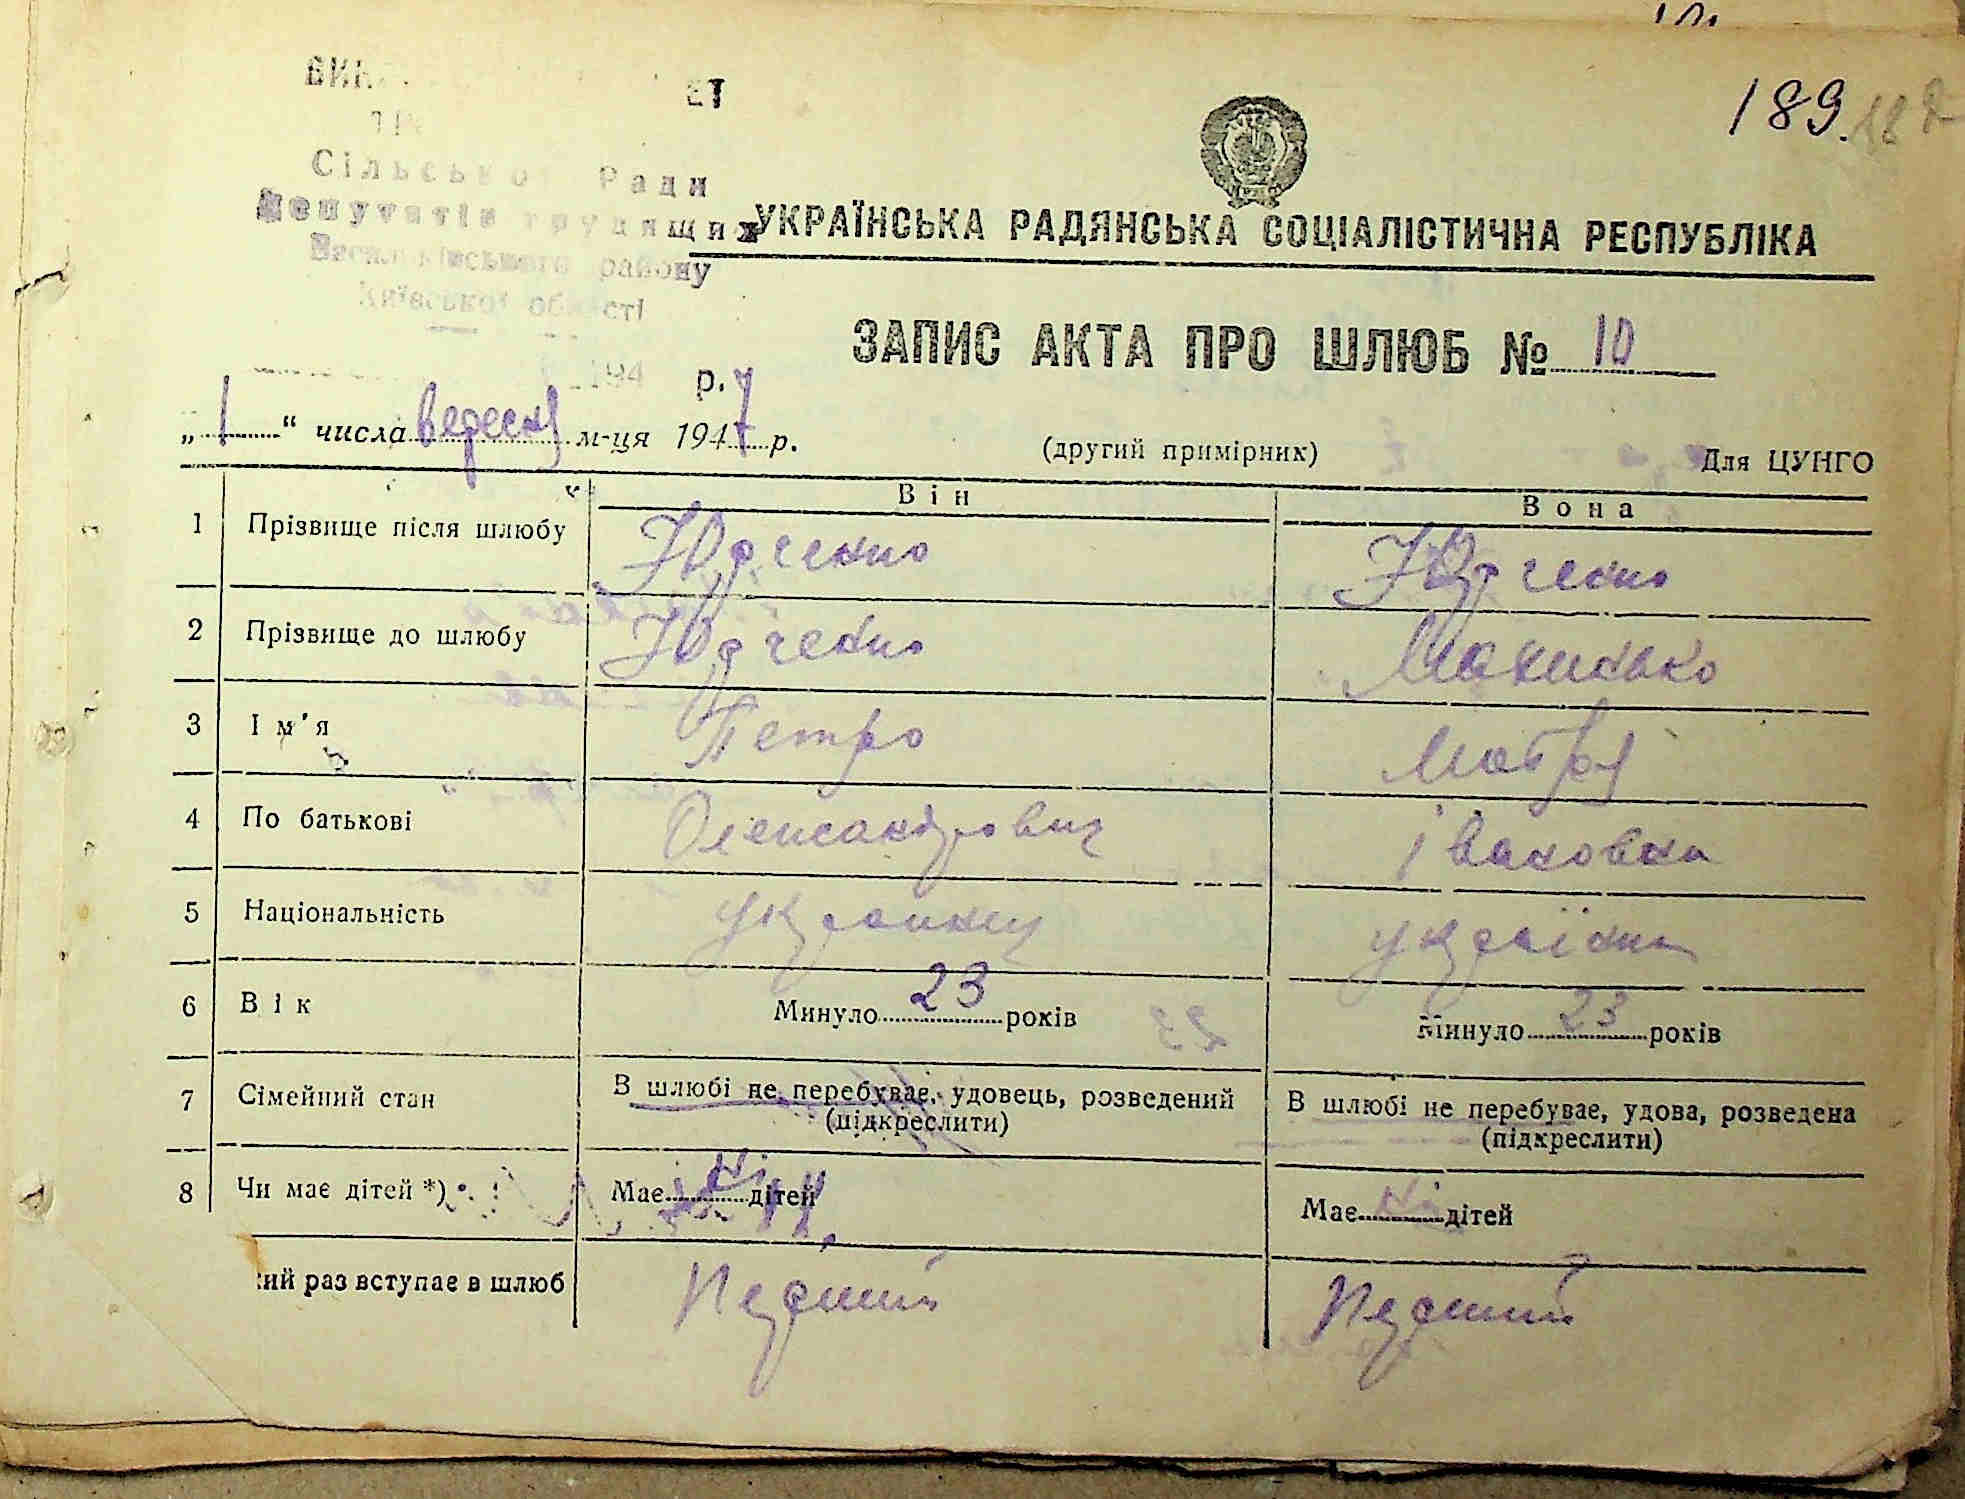 189.
Сільської Ради
Депутатів трудящих
Васильківського району
Київської області
194 р.
УКРАЇНСЬКА РАДЯНСЬКА СОЦІАЛІСТИЧНА РЕСПУБЛІКА
ЗАПИС АКТА ПРО ШЛЮБ № 10
„ 1 “ числа вересня м-ця 1947 р.
(другий примірник)
Для ЦУНГО
Він Вона
1 Прізвище після шлюбу Юрченко Юрченко
2 Прізвище до шлюбу Юрченко
3 Ім'я Петро Мотря
4 По батькові Олександрович Івановна
5 Національність українец українка
6 Вік Минуло 23 років Минуло 23 років
7 Сімейний стан В шлюбі не перебуває, удовець, розведений В шлюбі не перебуває, удова, розведена
(підкреслити) (підкреслити)
8 Чи має дітей *) Має ні дітей Має ні дітей
ий раз вступає в шлюб Перший Перший